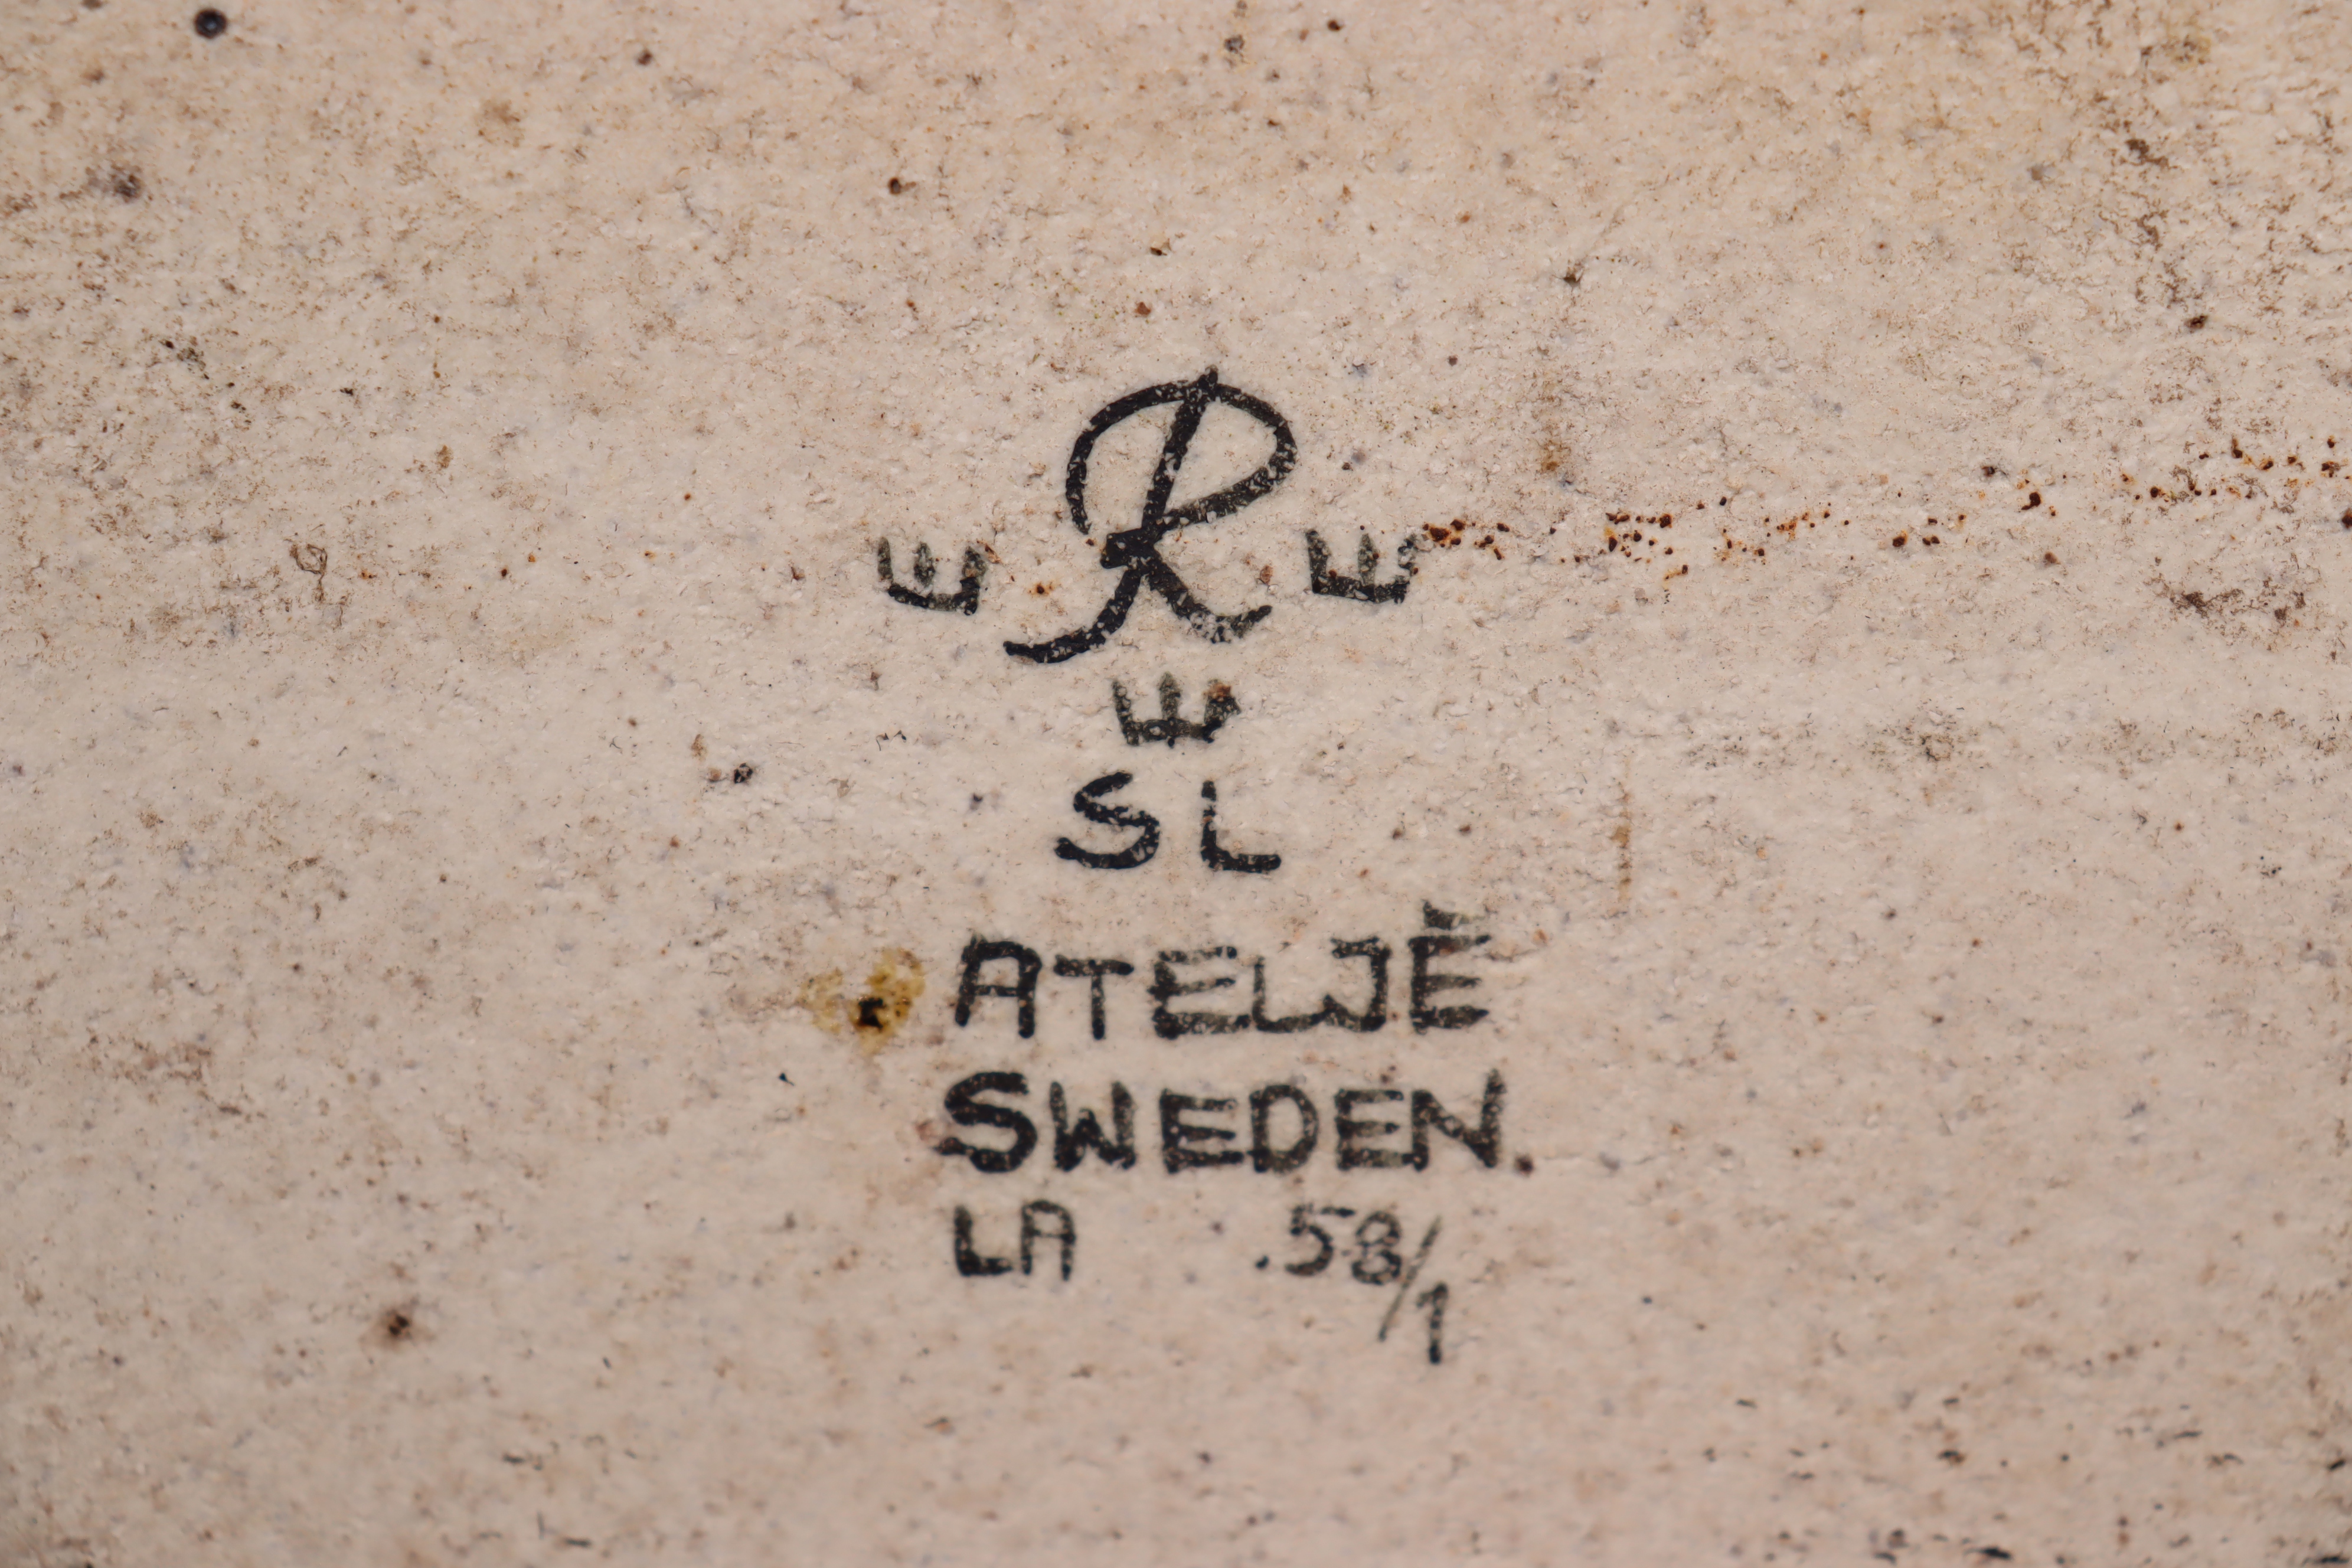 R
SL
ATELJÉ
SWEDEN.
LA .58/1